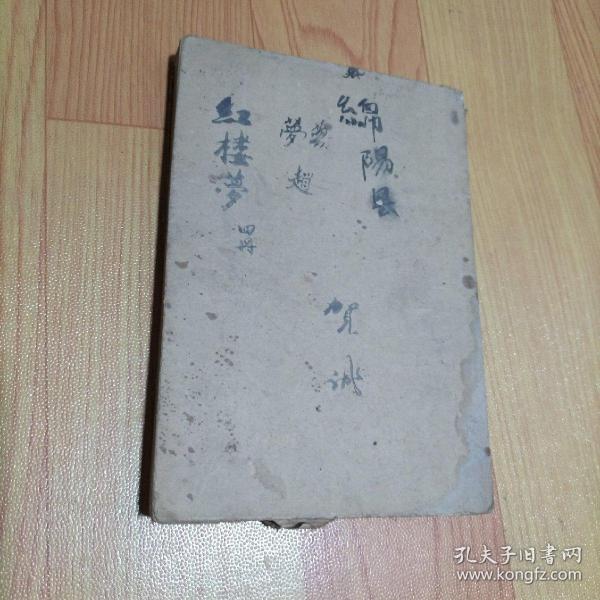 綿陽县
夢
趙
红楼夢
四冊
贺
孔夫子旧书网
www.kongfz.com